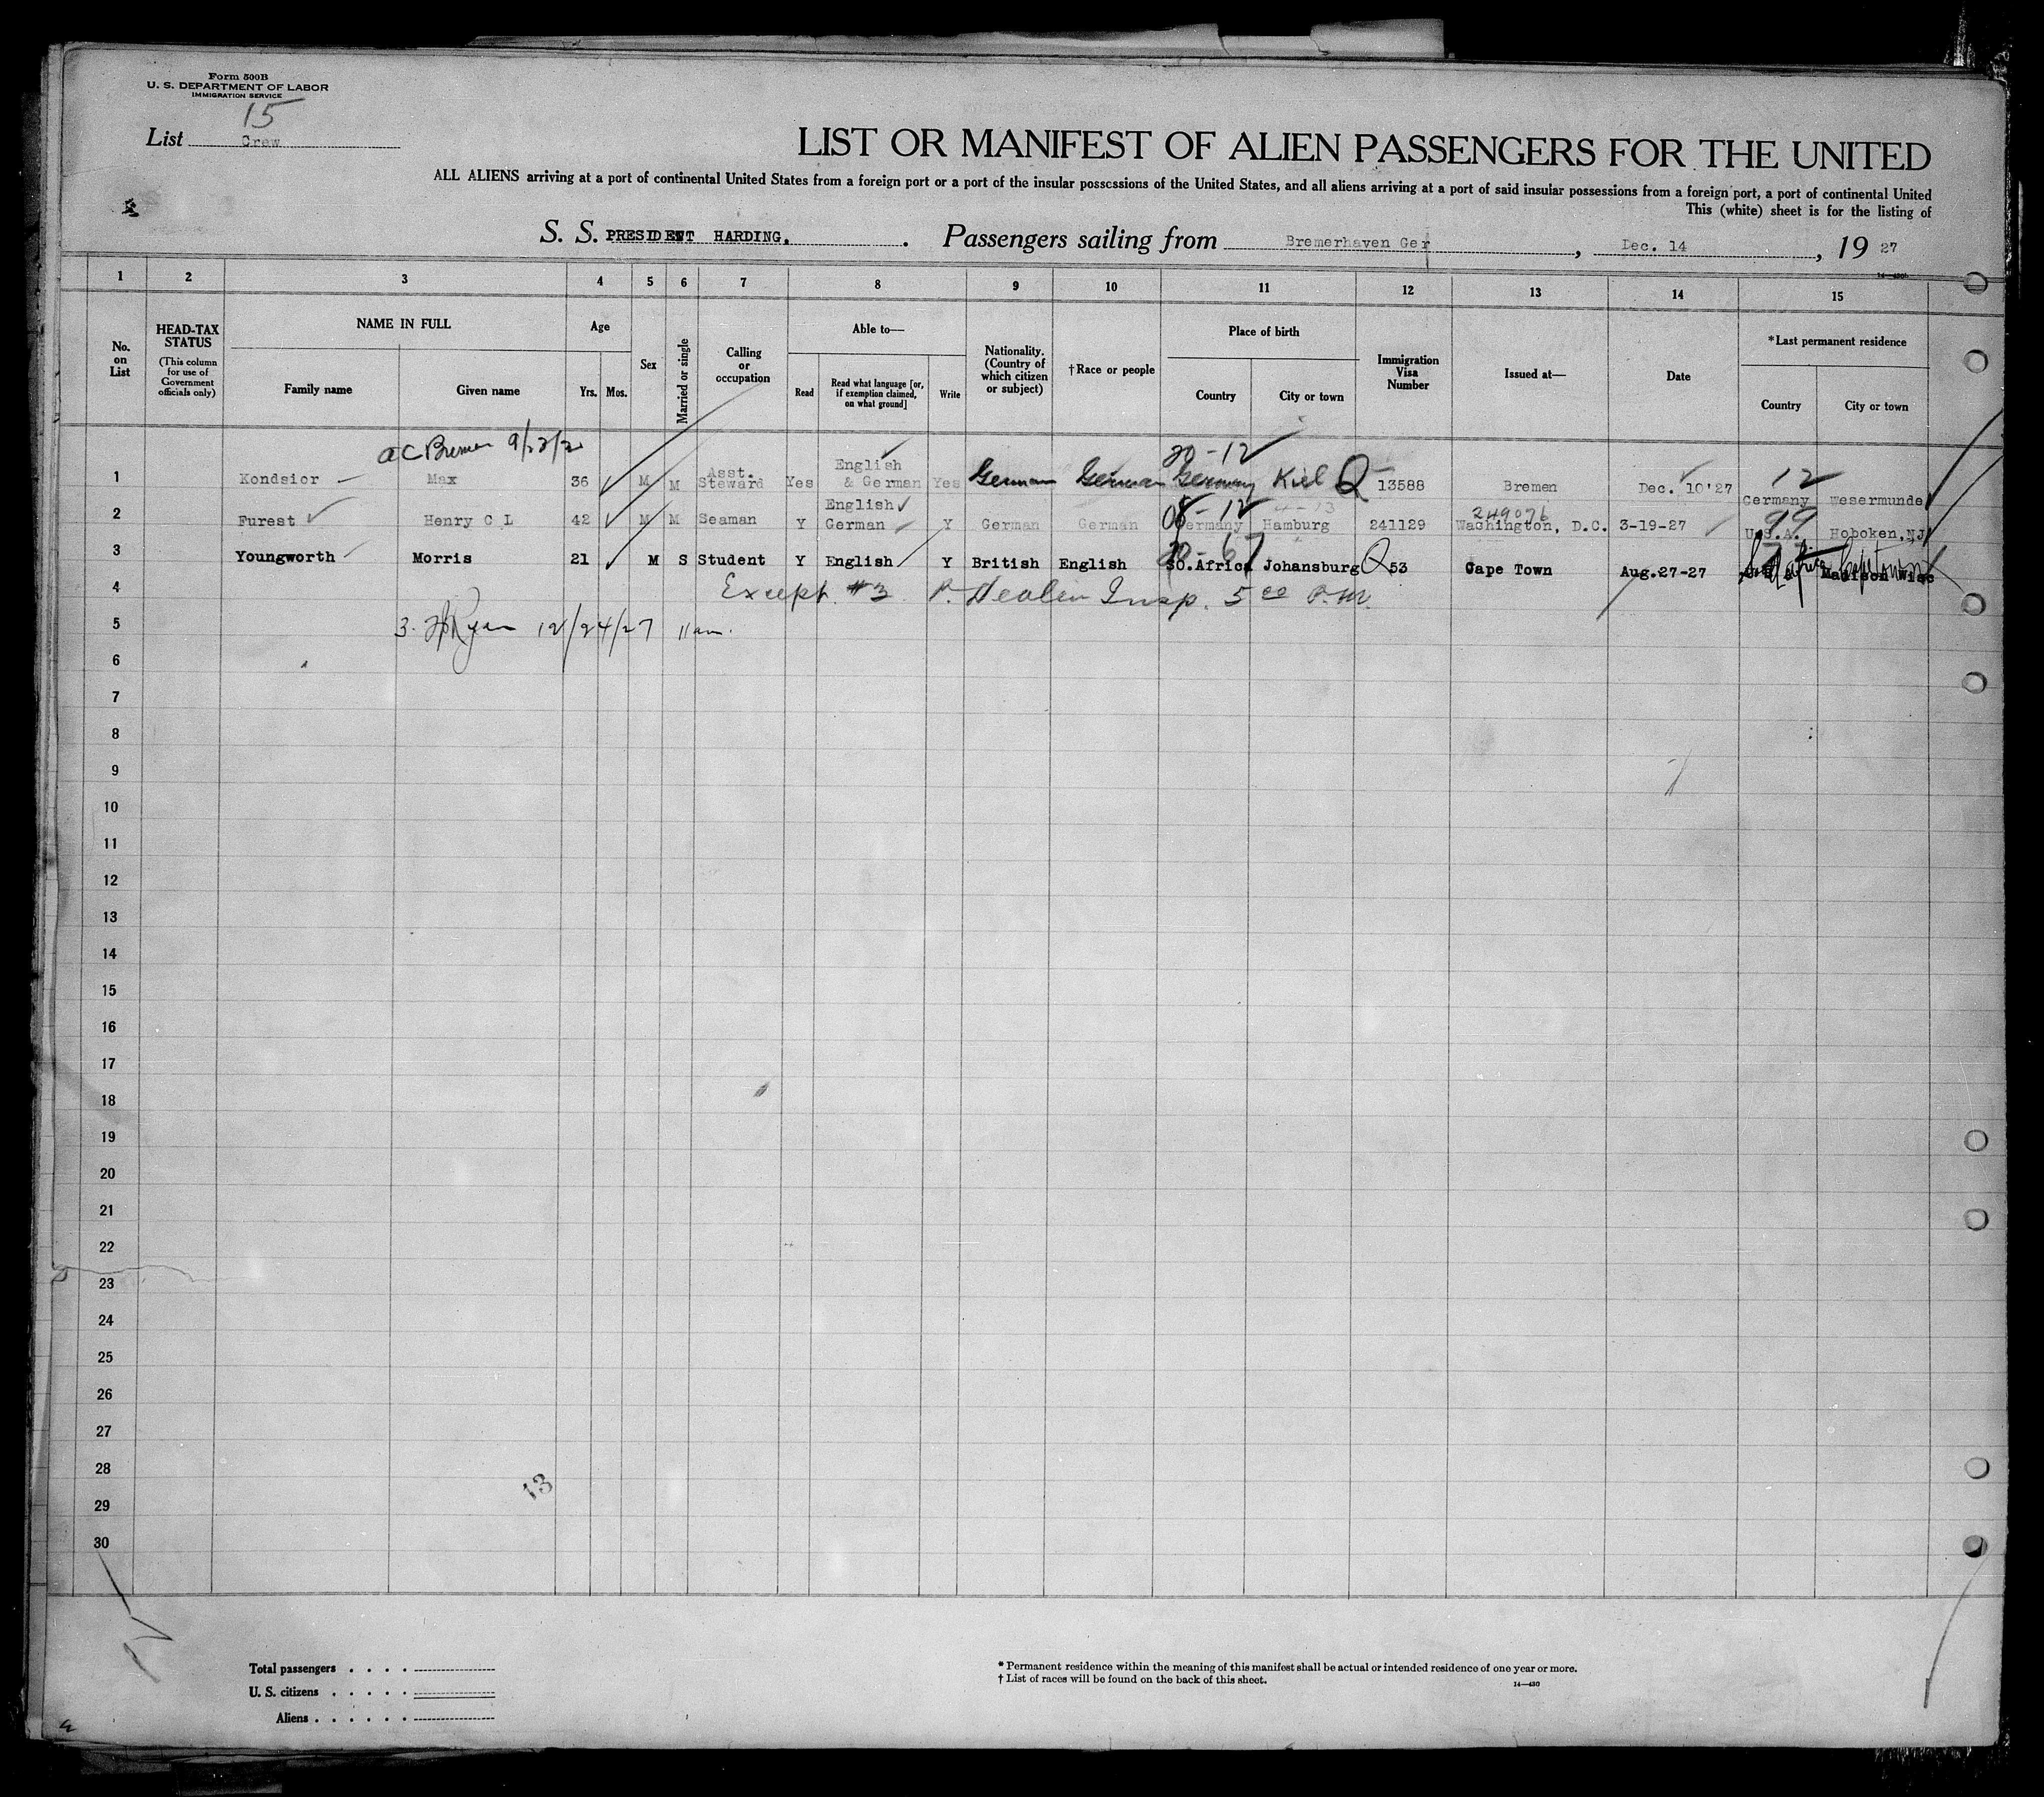 Form 500B
U. S. DEPARTMENT OF LABOR
IMMIGRATION SERVICE
15
List Crew
LIST OR MANIFEST OF ALIEN PASSENGERS FOR THE UNITED
ALL ALIENS arriving at a port of continental United States from a foreign port or a port of the insular possessions of the United States, and all aliens arriving at a port of said insular possessions from a foreign port, a port of continental United
This (white) sheet is for the listing of
S. S. PRESIDENT HARDING. Passengers sailing from Bremerhaven Ger, Dec. 14, 19 27
14—430
1 2 3 4 5 6 7 8 9 10 11 12 13 14 15
No. on List
HEAD-TAX STATUS (This column for use of Government officials only)
NAME IN FULL
Family name Given name
Age
Yrs. Mos.
Sex
Married or single
Calling or occupation
Able to—
Read Read what language [or, if exemption claimed, on what ground] Write
Nationality. (Country of which citizen or subject)
†Race or people
Place of birth
Country City or town
Immigration Visa Number
Issued at—
Date
*Last permanent residence
Country City or town
ac Bremen 9/23/2 20-12
1 Kondsior Max 36 M M Asst. Steward Yes English & German Yes German German Germany Kiel Q 13588 Bremen Dec. 10'27 12 Germany Wesermunde
08-12 4-13 249076 99
2 Furest Henry C L 42 M M Seaman Y English German Y German German Germany Hamburg 241129 Washington, D.C. 3-19-27 U.S.A. Hoboken, NJ
20-67
3 Youngworth Morris 21 M S Student Y English Y British English SO.Africa Johansburg Q 53 Cape Town Aug.27-27 Madison Wisc
4 Except #3 P. Healen Insp. 5 00 P.M.
5 3. Ryan 12/24/27 11am.
6
7
8
9
10
11
12
13
14
15
16
17
18
19
20
21
22
23
24
25
26
27
28
13
29
30
Total passengers . . . .
U. S. citizens . . . . .
Aliens . . . . . .
* Permanent residence within the meaning of this manifest shall be actual or intended residence of one year or more.
† List of races will be found on the back of this sheet.
14—430